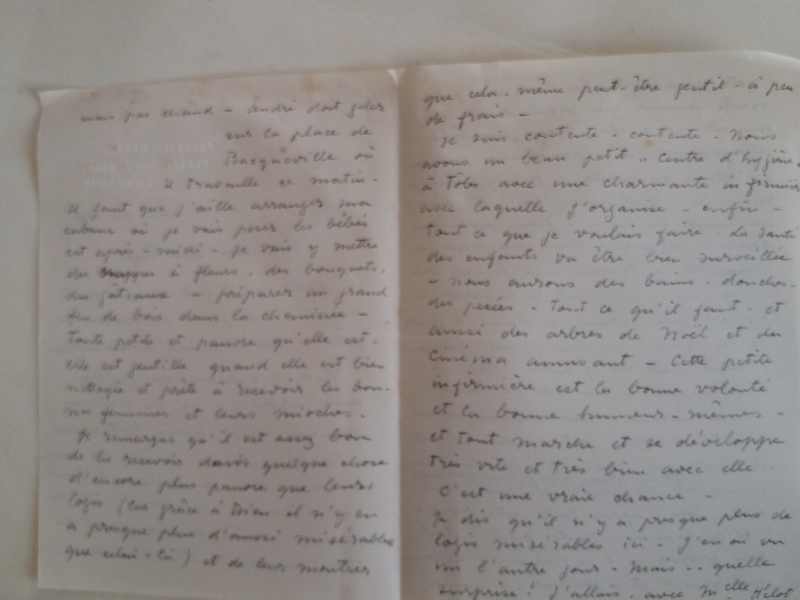 mais pas chaud - André doit geler
sur la place de
Bacqueville où
il travaille ce matin.
Il faut que j'aille arranger ma
cabane où je vais peser les bébés
cet après-midi - Je vais y mettre
des nappes à fleurs, des bouquets,
du gâteaux - préparer un grand
feu de bois dans la cheminée -
toute petite et pauvre qu'elle est,
elle est gentille quand elle est bien
nettoyée et prête à recevoir les bon-
nes femmes et leurs mioches.
Je remarque qu'il est assez bon
de les recevoir dans quelque chose
d'encore plus pauvre que leurs
logis (car grâce à Dieu il n'y en
a presque plus d'aussi misérables
que celui-là) et de leur montrer
que cela-même peut-être gentil - à peu
de frais -
Je suis contente - contente. Nous
avons un beau petit "Centre d'hygiène,
à Tôtes avec une charmante infirmière
avec laquelle j'organise - enfin -
tout ce que je voulais faire - La santé
des enfants va être bien surveillée
- nous aurons des bains - douches -
des pesées - tout ce qu'il faut - et
aussi des arbres de Noël et du
cinéma amusant - Cette petite
infirmière est la bonne volonté
et la bonne humeur - mêmes -
et tout marche et se développe
très vite et très bien avec elle -
C'est une vraie chance -
Je dis qu'il n'y a presque plus de
logis misérables ici - J'en ai vu
un l'autre jour - Mais .. quelle
surprise! J'allais avec Melle Hélot